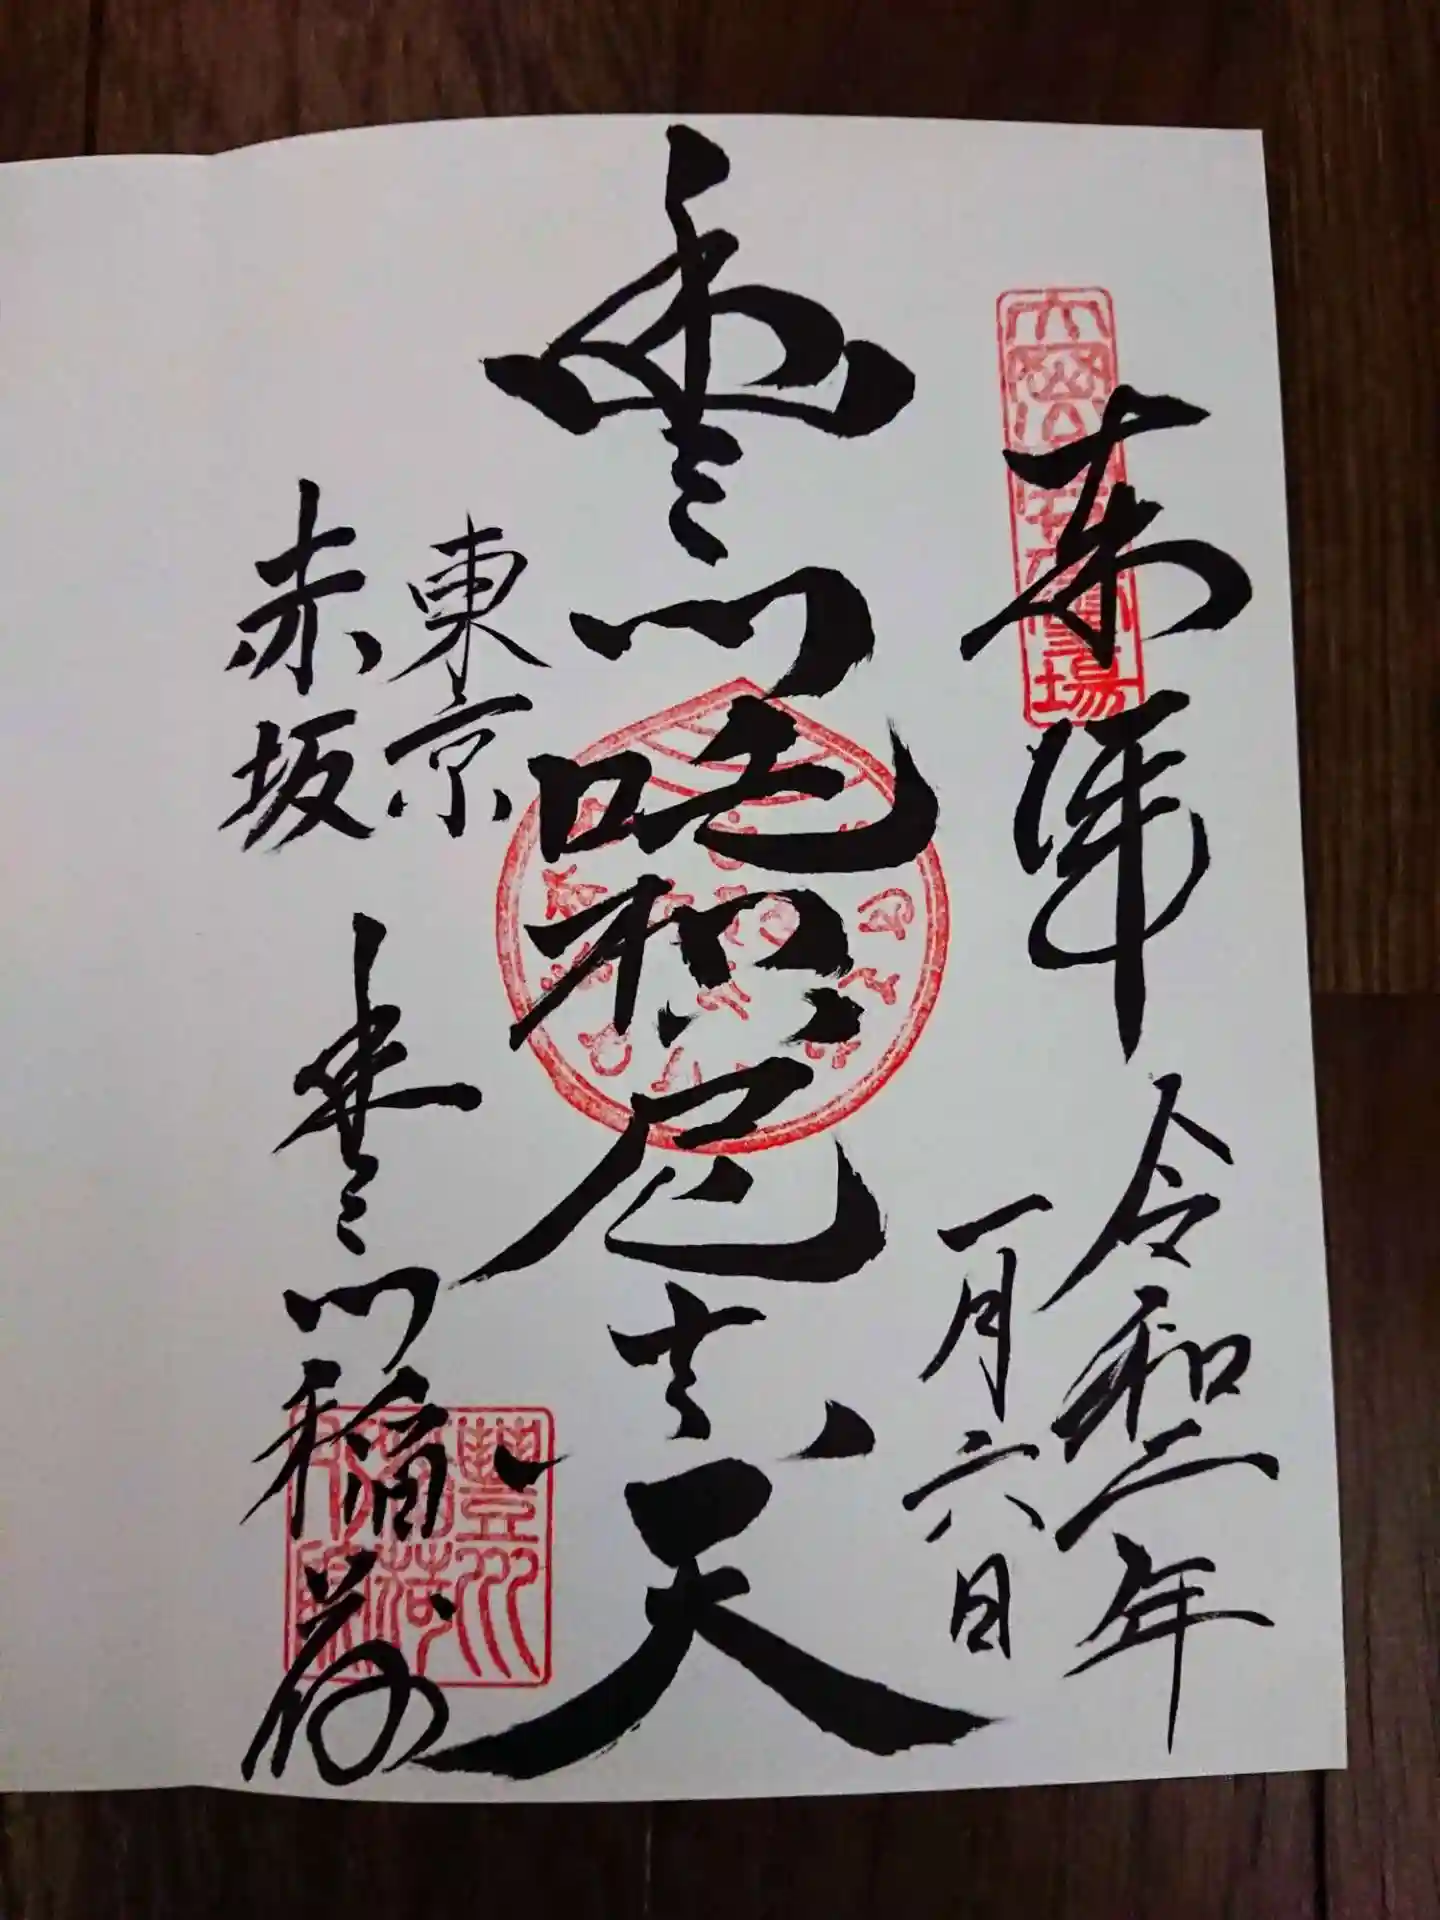 奉拝
令和二年
一月六日
豊川吒枳尼真天
東京
赤坂
豊川稲荷
豐川
稲荷